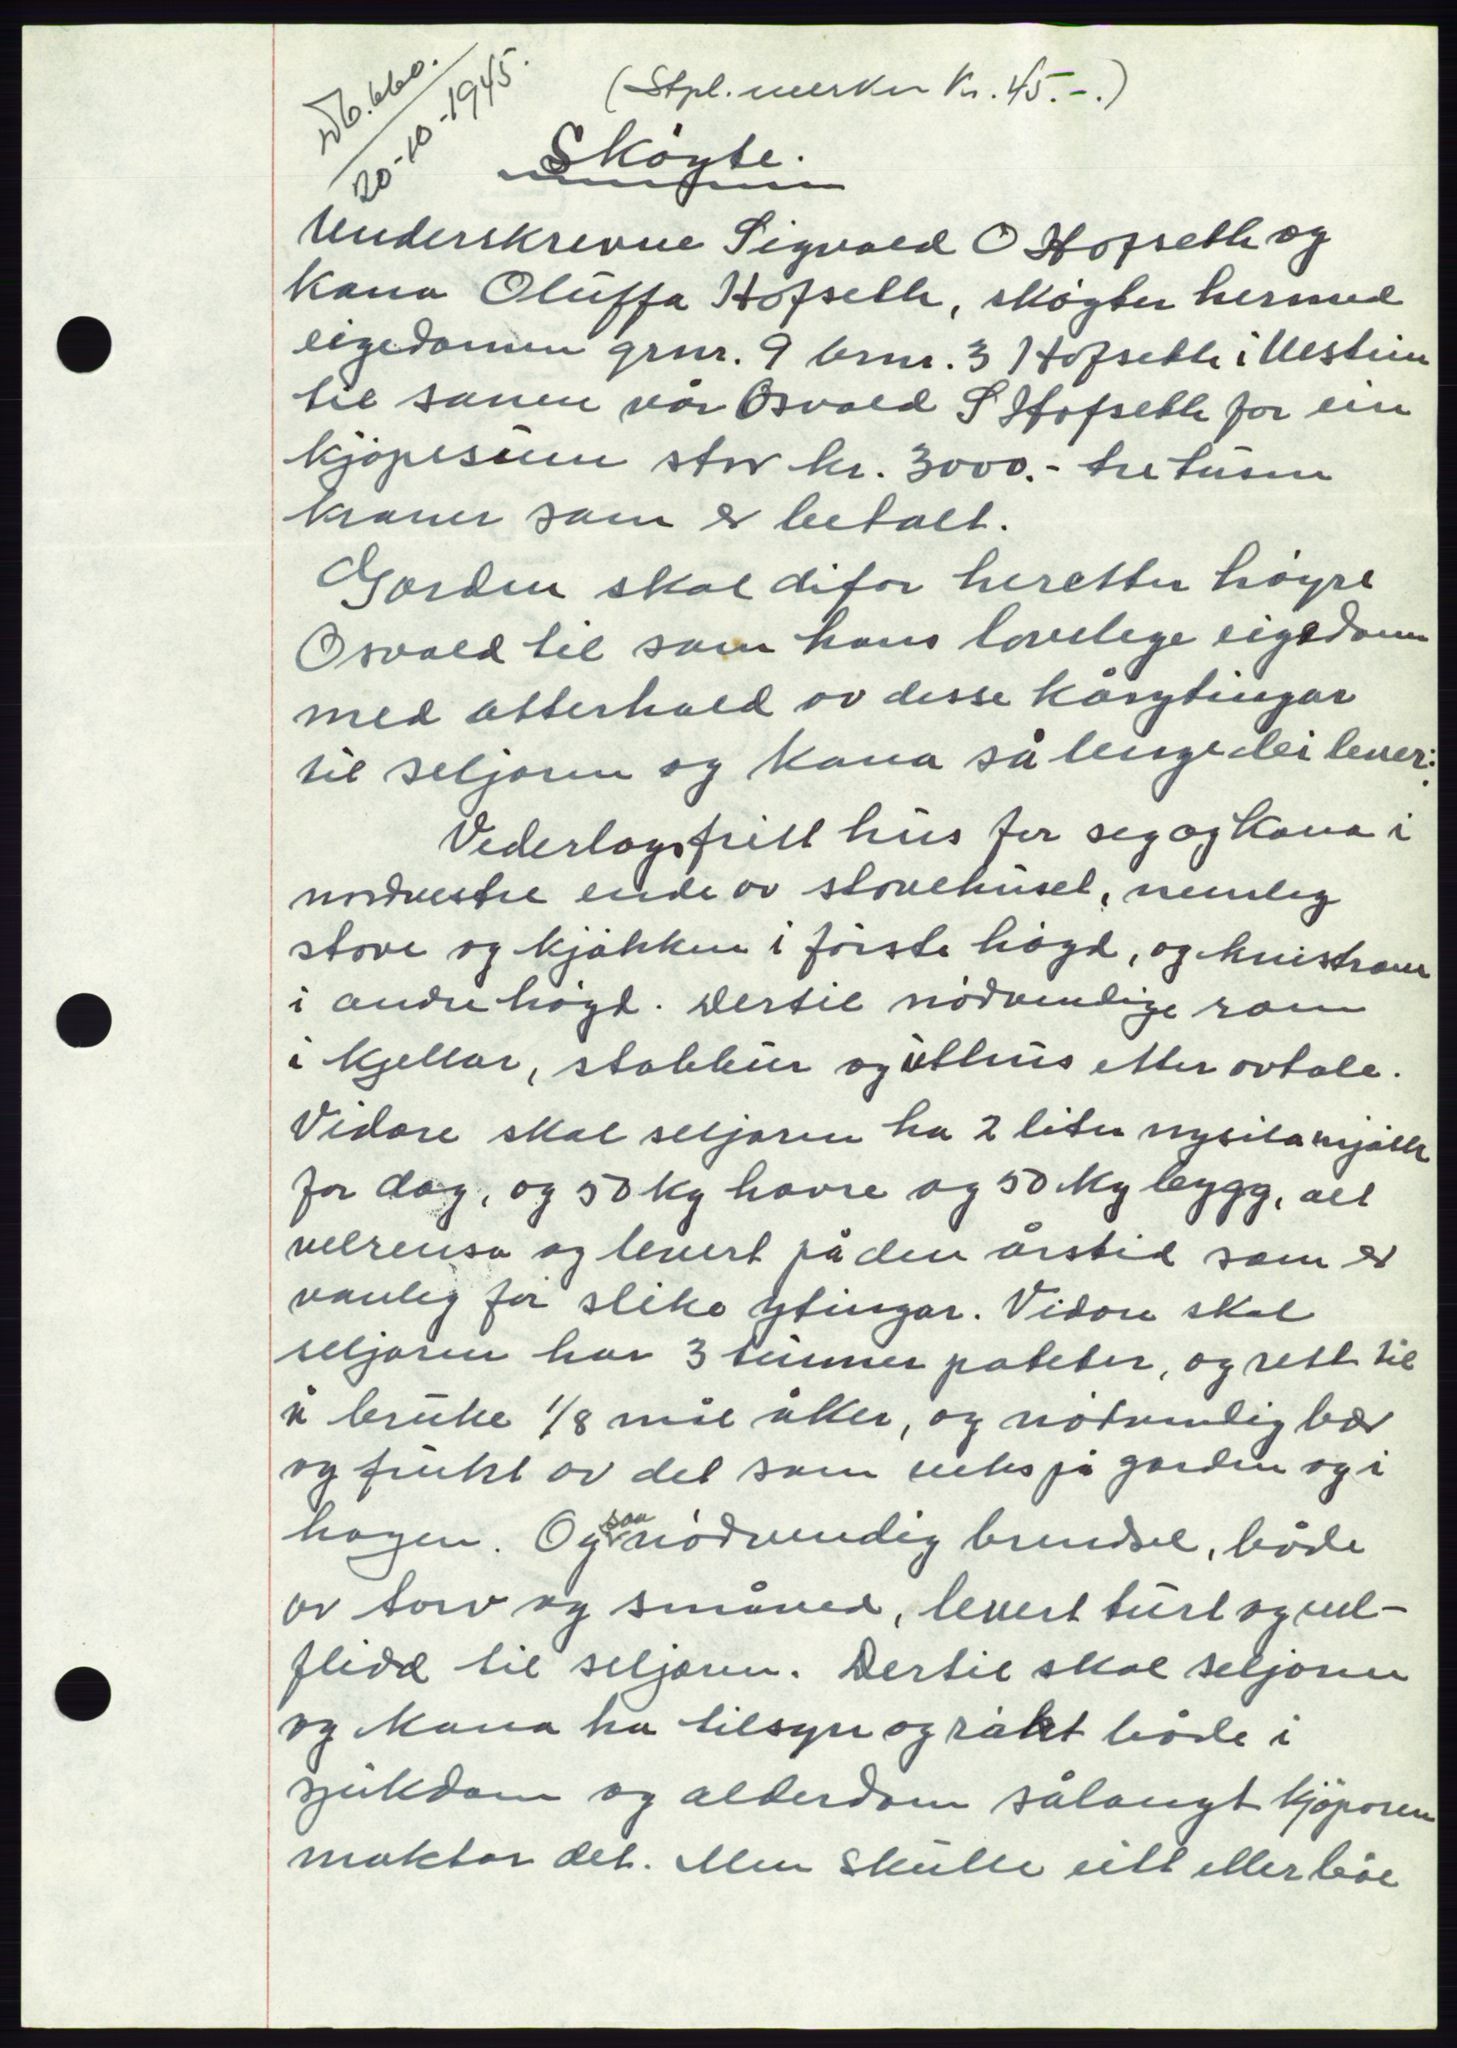 Db. 660.
20-10-1945.
(Stpl.merker Kr. 45.-.)
Sköyte.
Underskrevne Sigvald O Hofseth og
kona Oluffa Hofseth, sköyter hermed
eigedomen grnr. 9 brnr. 3 Hofseth i
til sonen vår Osvald S Hofseth for ein
kjöpesum stor kr. 3000.- tre tusen
kroner som er betalt.
Garden skal difor heretter höyre
Osvald til som hans lovelege eigedom
med atterhald av desse kårytingar
til seljaren og kona så lenge dei lever:
Vederlagsfritt hus for seg og kona i
nordvestre ende av stovehuset, nemleg
stove og kjökken i förste högd, og kvistrom
i andre högd. Dertil nödvendige rom
i kjellar, stabbur og uthus etter avtale.
Vidare skal seljaren ha 2 liter nysila mjölk
for dag, og 50 kg havre og 50 kg bygg, alt
velrensa og levert på den årstid som er
vanleg for slike ytingar. Vidare skal
seljaren hav 3 tunner poteter, og rett til
å bruke 1/8 mål åker, og nödvendig bær
og frukt av det som veks på garden og i
hagen. Ogsaa nödvendig brendsel, både
av torv og småved, levert turt og vel-
flidd til seljaren. Dertil skal seljaren
og kona ha tilsyn og räkt både i
sjukdom og alderdom sålangt kjöparen
maktar det. Men skulle eitt eller båe